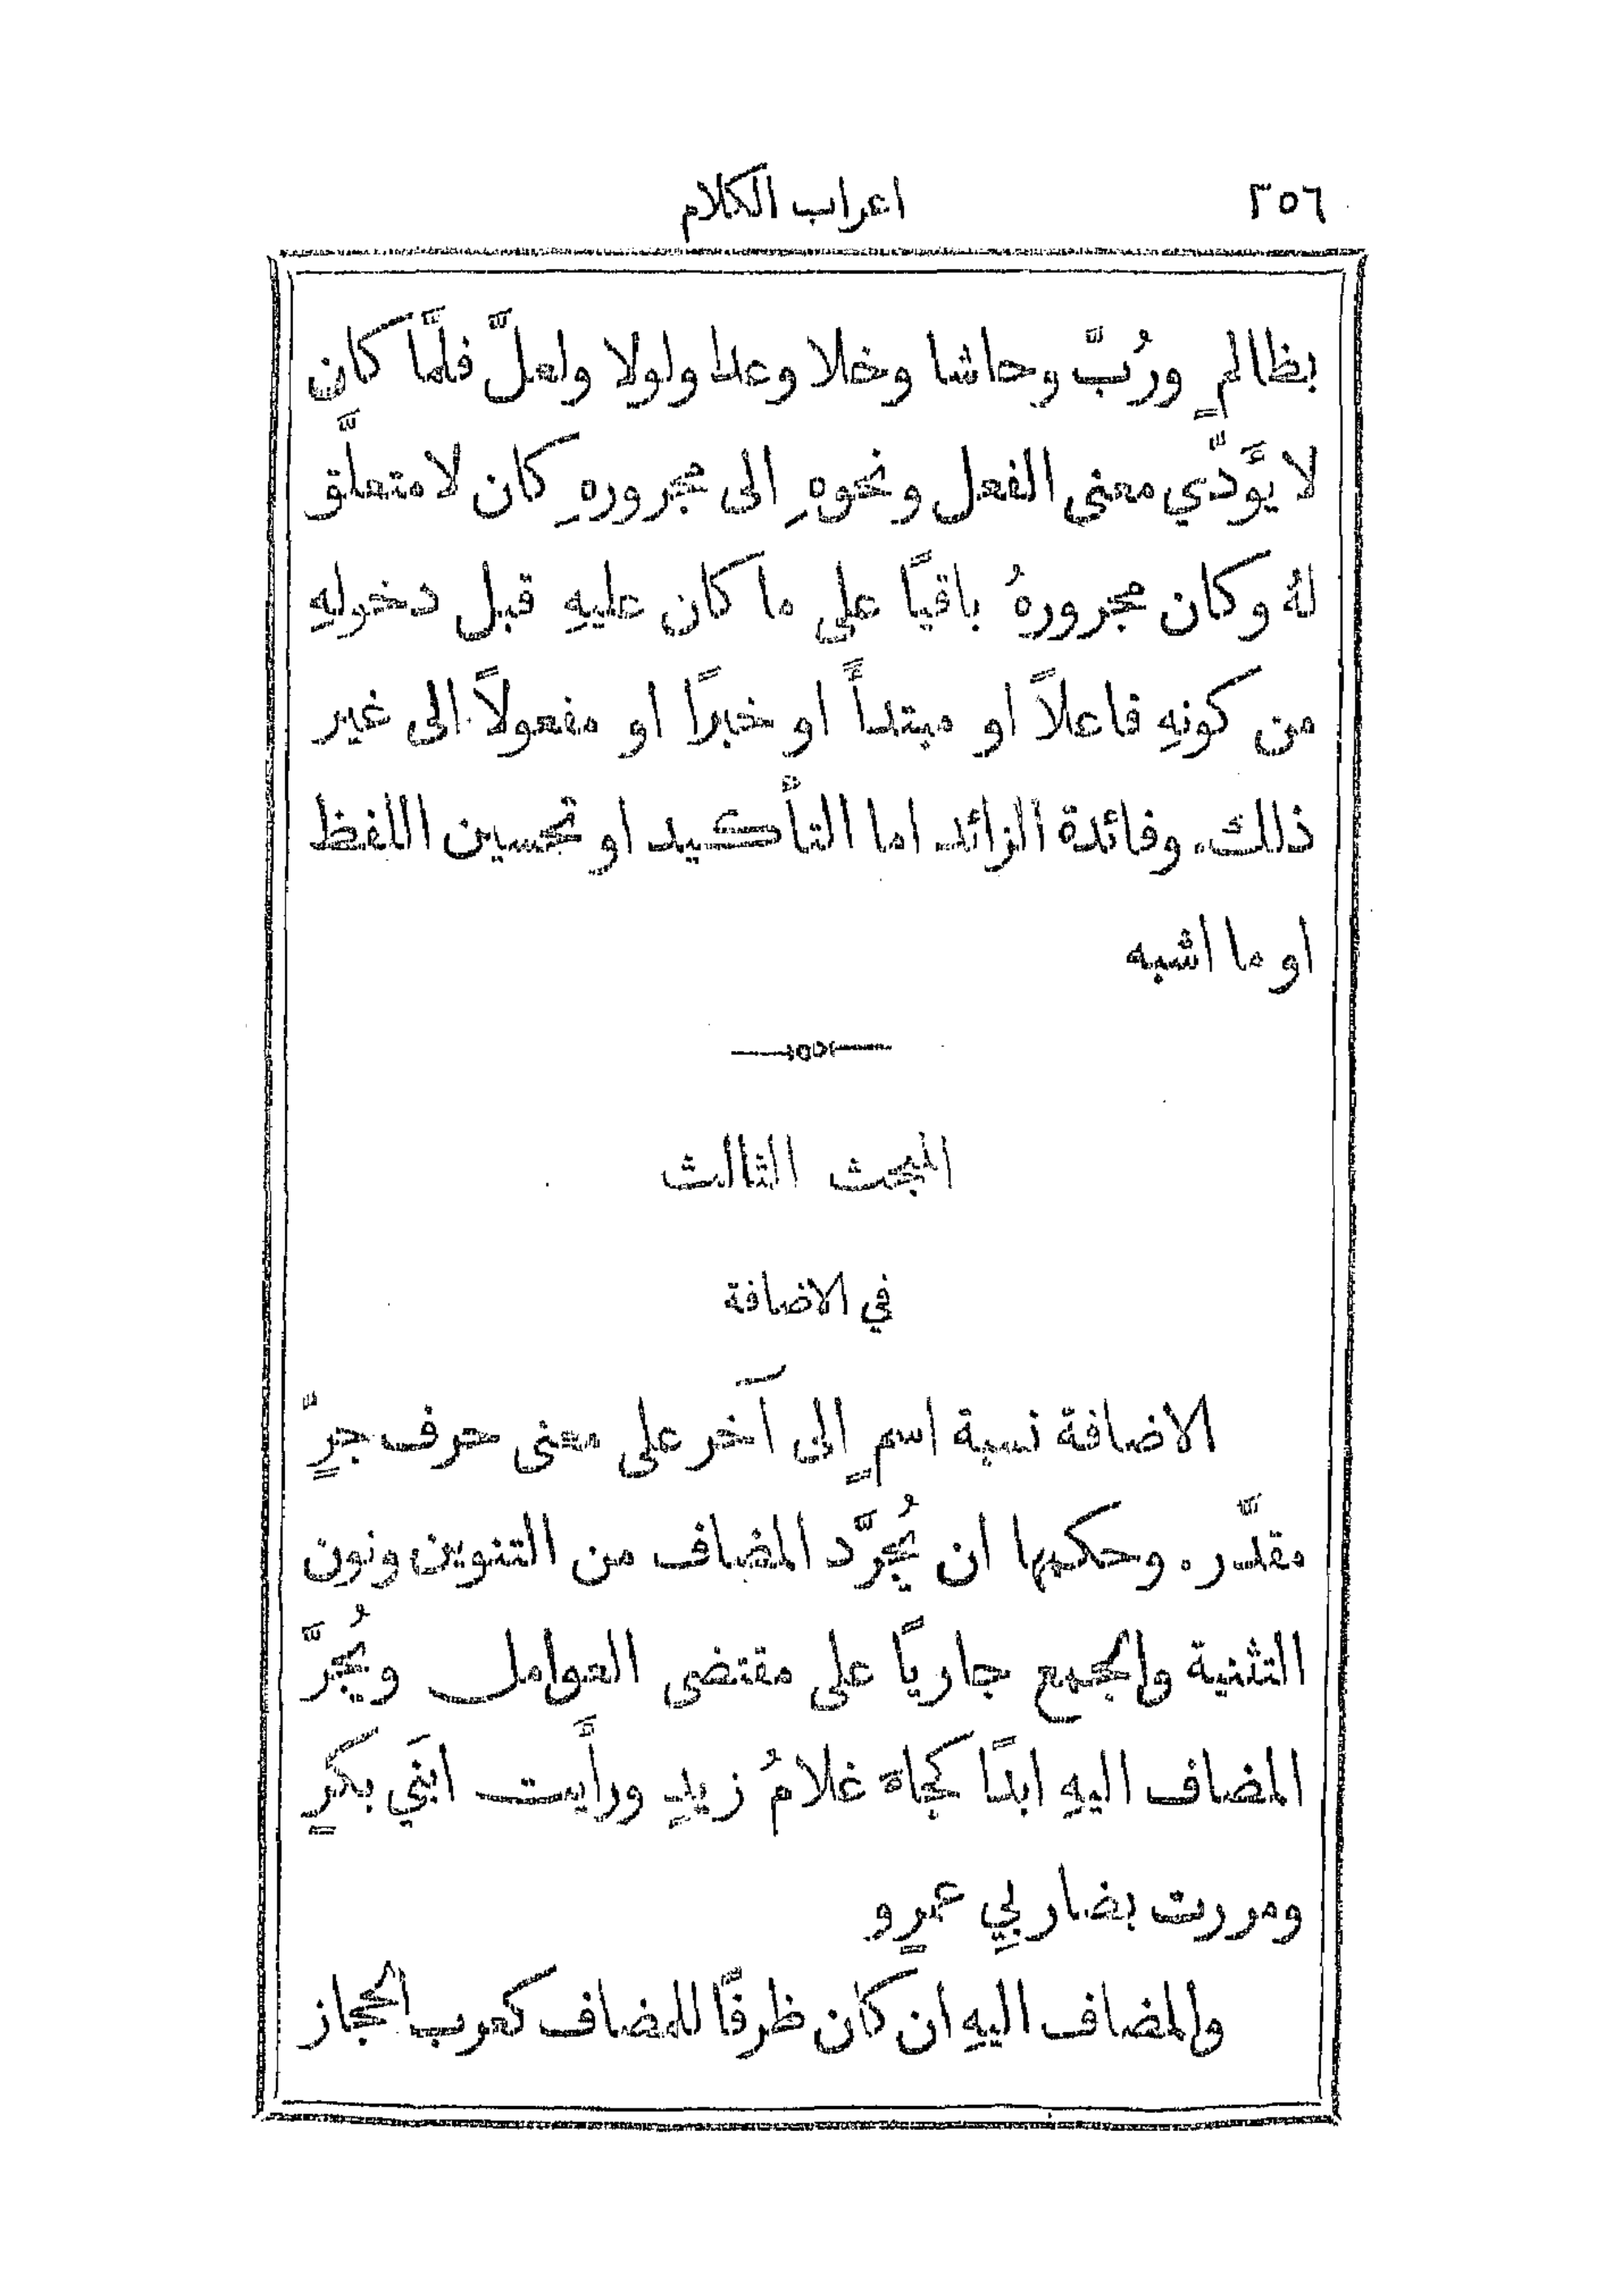 ٢٥٦ اعراب الكلام
بظالمٍ ورُبَّ وحاشا وخلا وعدا ولولا ولعلَّ فلمَّا كان
لا يؤَدّي معنى الفعل ونحوهِ الى مجرورهِ كان لا متعلَّق
لهُ وكان مجرورهُ باقيًا على ما كان عليهِ قبل دخولهِ
من كونهِ فاعلاً او مبتدأً او خبرًا او مفعولاً الى غير
ذلك. وفائدة الزائد اما التأكيد او تحسين اللفظ
او ما اشبه
المبحث الثالث
في الاضافة
الاضافة نسبة اسمٍ إلى آخر على معنى حرف جرٍّ
مقدَّر. وحكمها ان يُجرَّد المضاف من التنوين ونون
التثنية والجمع جاريًا على مقتضى العوامل ويُجرَّ
المضاف اليهِ ابدًا كجاءَ غلامُ زيدٍ ورأَيت ابنَي بكرٍ
ومررت بضاربِي عمرٍو
والمضاف اليهِ ان كان ظرفًا للمضاف كعرب الحجاز